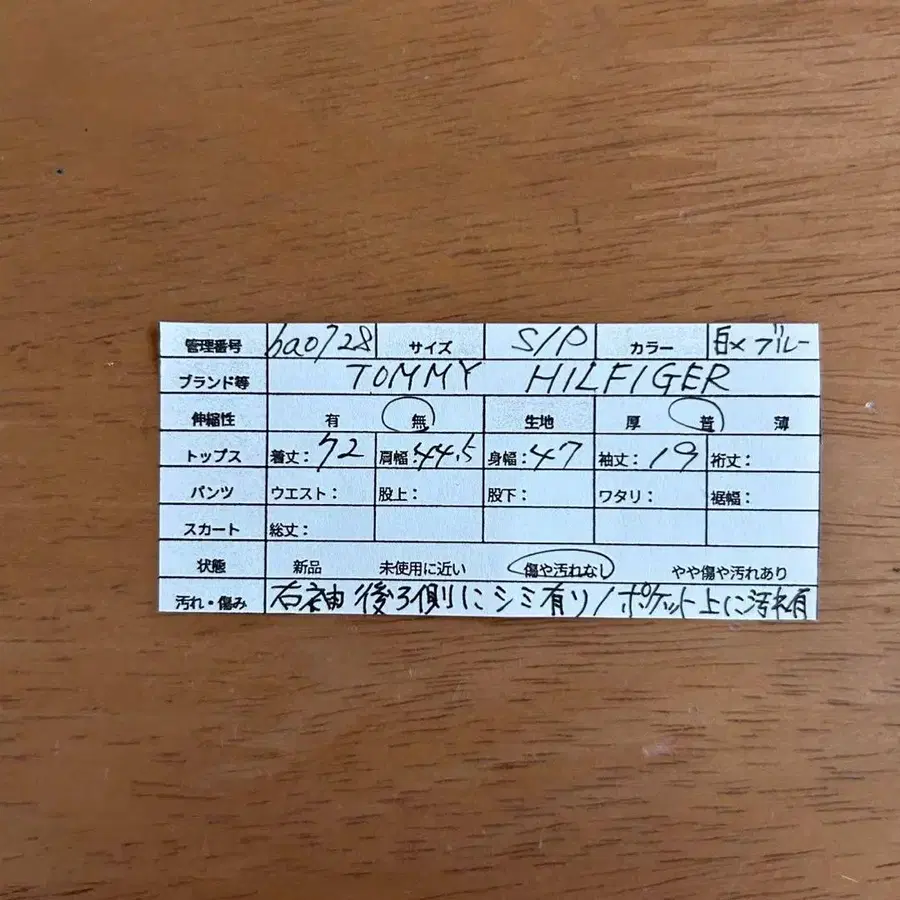 管理番号 hao728 サイズ S/P カラー 白×ブルー
ブランド等 TOMMY HILFIGER
伸縮性 有 無 生地 厚 普 薄
トップス 着丈:72 肩幅:44.5 身幅:47 袖丈:19 裄丈:
パンツ ウエスト: 股上: 股下: ワタリ: 裾幅:
スカート 総丈:
状態 新品 未使用に近い 傷や汚れなし やや傷や汚れあり
汚れ・傷み 右袖後ろ側にシミ有り/ポケット上に汚れ有